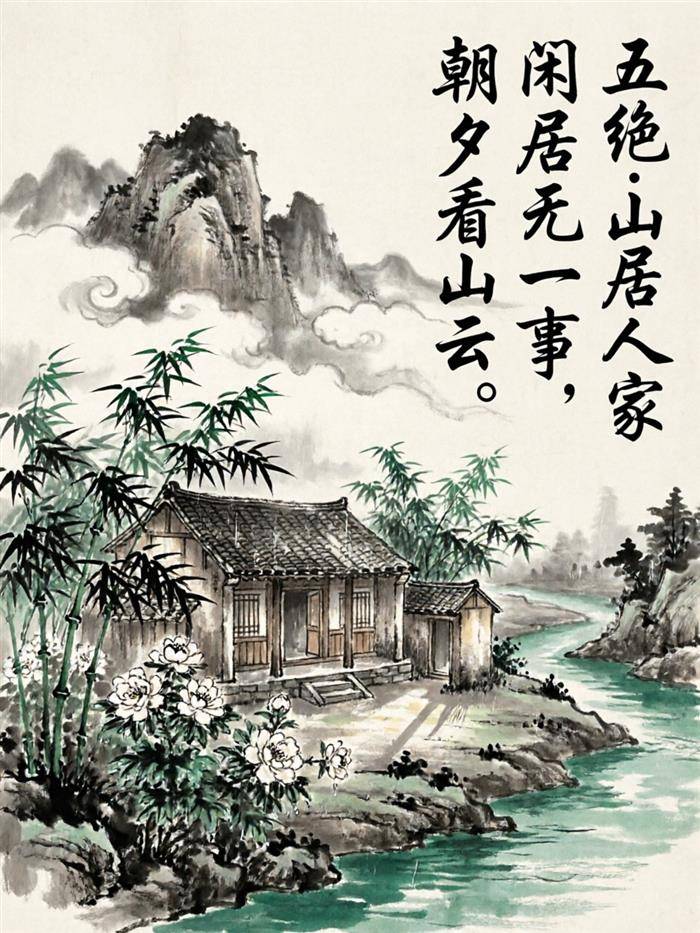 五绝·山居人家
闲居无一事，
朝夕看山云。